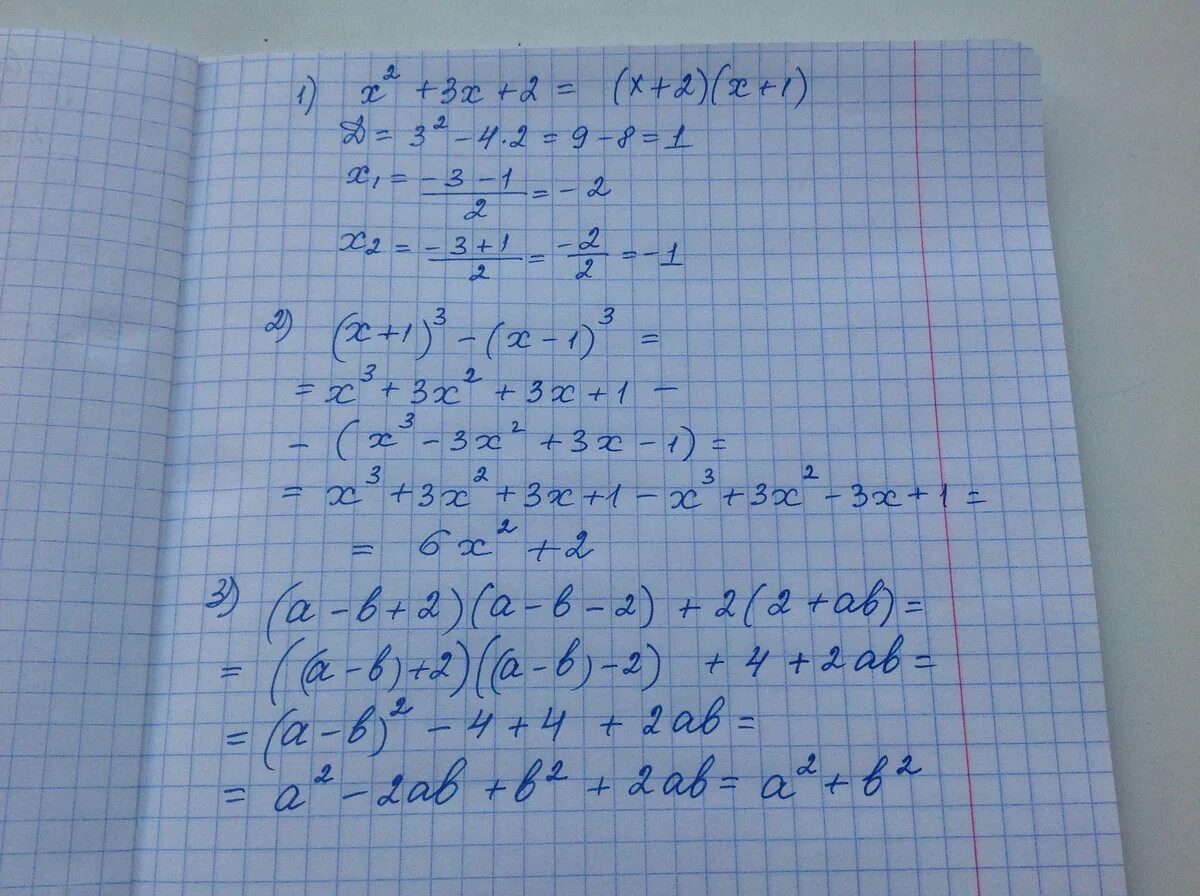 1) x² + 3x + 2 = (x+2)(x+1)
D = 3² - 4·2 = 9 - 8 = 1
x₁ = (-3-1)/2 = -2
x₂ = (-3+1)/2 = -2/2 = -1
2) (x+1)³ - (x-1)³ =
= x³ + 3x² + 3x + 1 -
- (x³ - 3x² + 3x - 1) =
= x³ + 3x² + 3x + 1 - x³ + 3x² - 3x + 1 =
= 6x² + 2
3) (a - b + 2)(a - b - 2) + 2(2 + ab) =
= ((a - b) + 2)((a - b) - 2) + 4 + 2ab =
= (a - b)² - 4 + 4 + 2ab =
= a² - 2ab + b² + 2ab = a² + b²